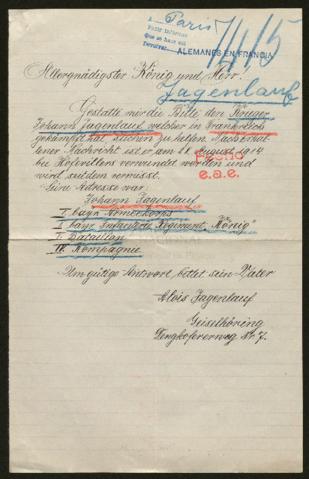 Paris
Para informar
Que se hace así
ALEMANES EN FRANCIA
Allergnädigster König und Herr!
Jagenlauf
Gestatte mir die Bitte den Krieger
Johann Jagenlauf welcher in Frankreich
gekämpft hat, suchen zu helfen. Nach
Nachricht ist er am 24. August 1914
bei verwundet worden und
wird seitdem vermisst.
Seine Adresse war:
Johann Jagenlauf
Hecho
e.a.e.
I. bayr. Armeekorps
I. bayr. Infanterie Regiment "König"
I. Bataillon
IV. Kompagnie
Um gütige Antwort bittet sein Vater
Alois Jagenlauf
Geiselhöring
Dengkofererweg Nr. 7.